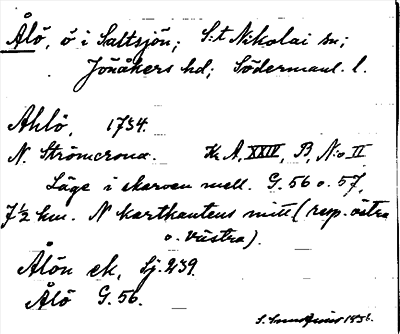 Ålö, ö i Saltsjön; S:t Nikolai sn;
Jönåkers hd; Södermanl. l.
Ahlö, 1734.
N. Strömcrona. K. A. XXIV, B, N:o II
Läge i skarven mell. G. 56 o. 57,
7½ km. N kartkantens mitt (resp. östra
o. västra).
Ålön ek, Sj. 239.
Ålö G. 56.
S. 1936.